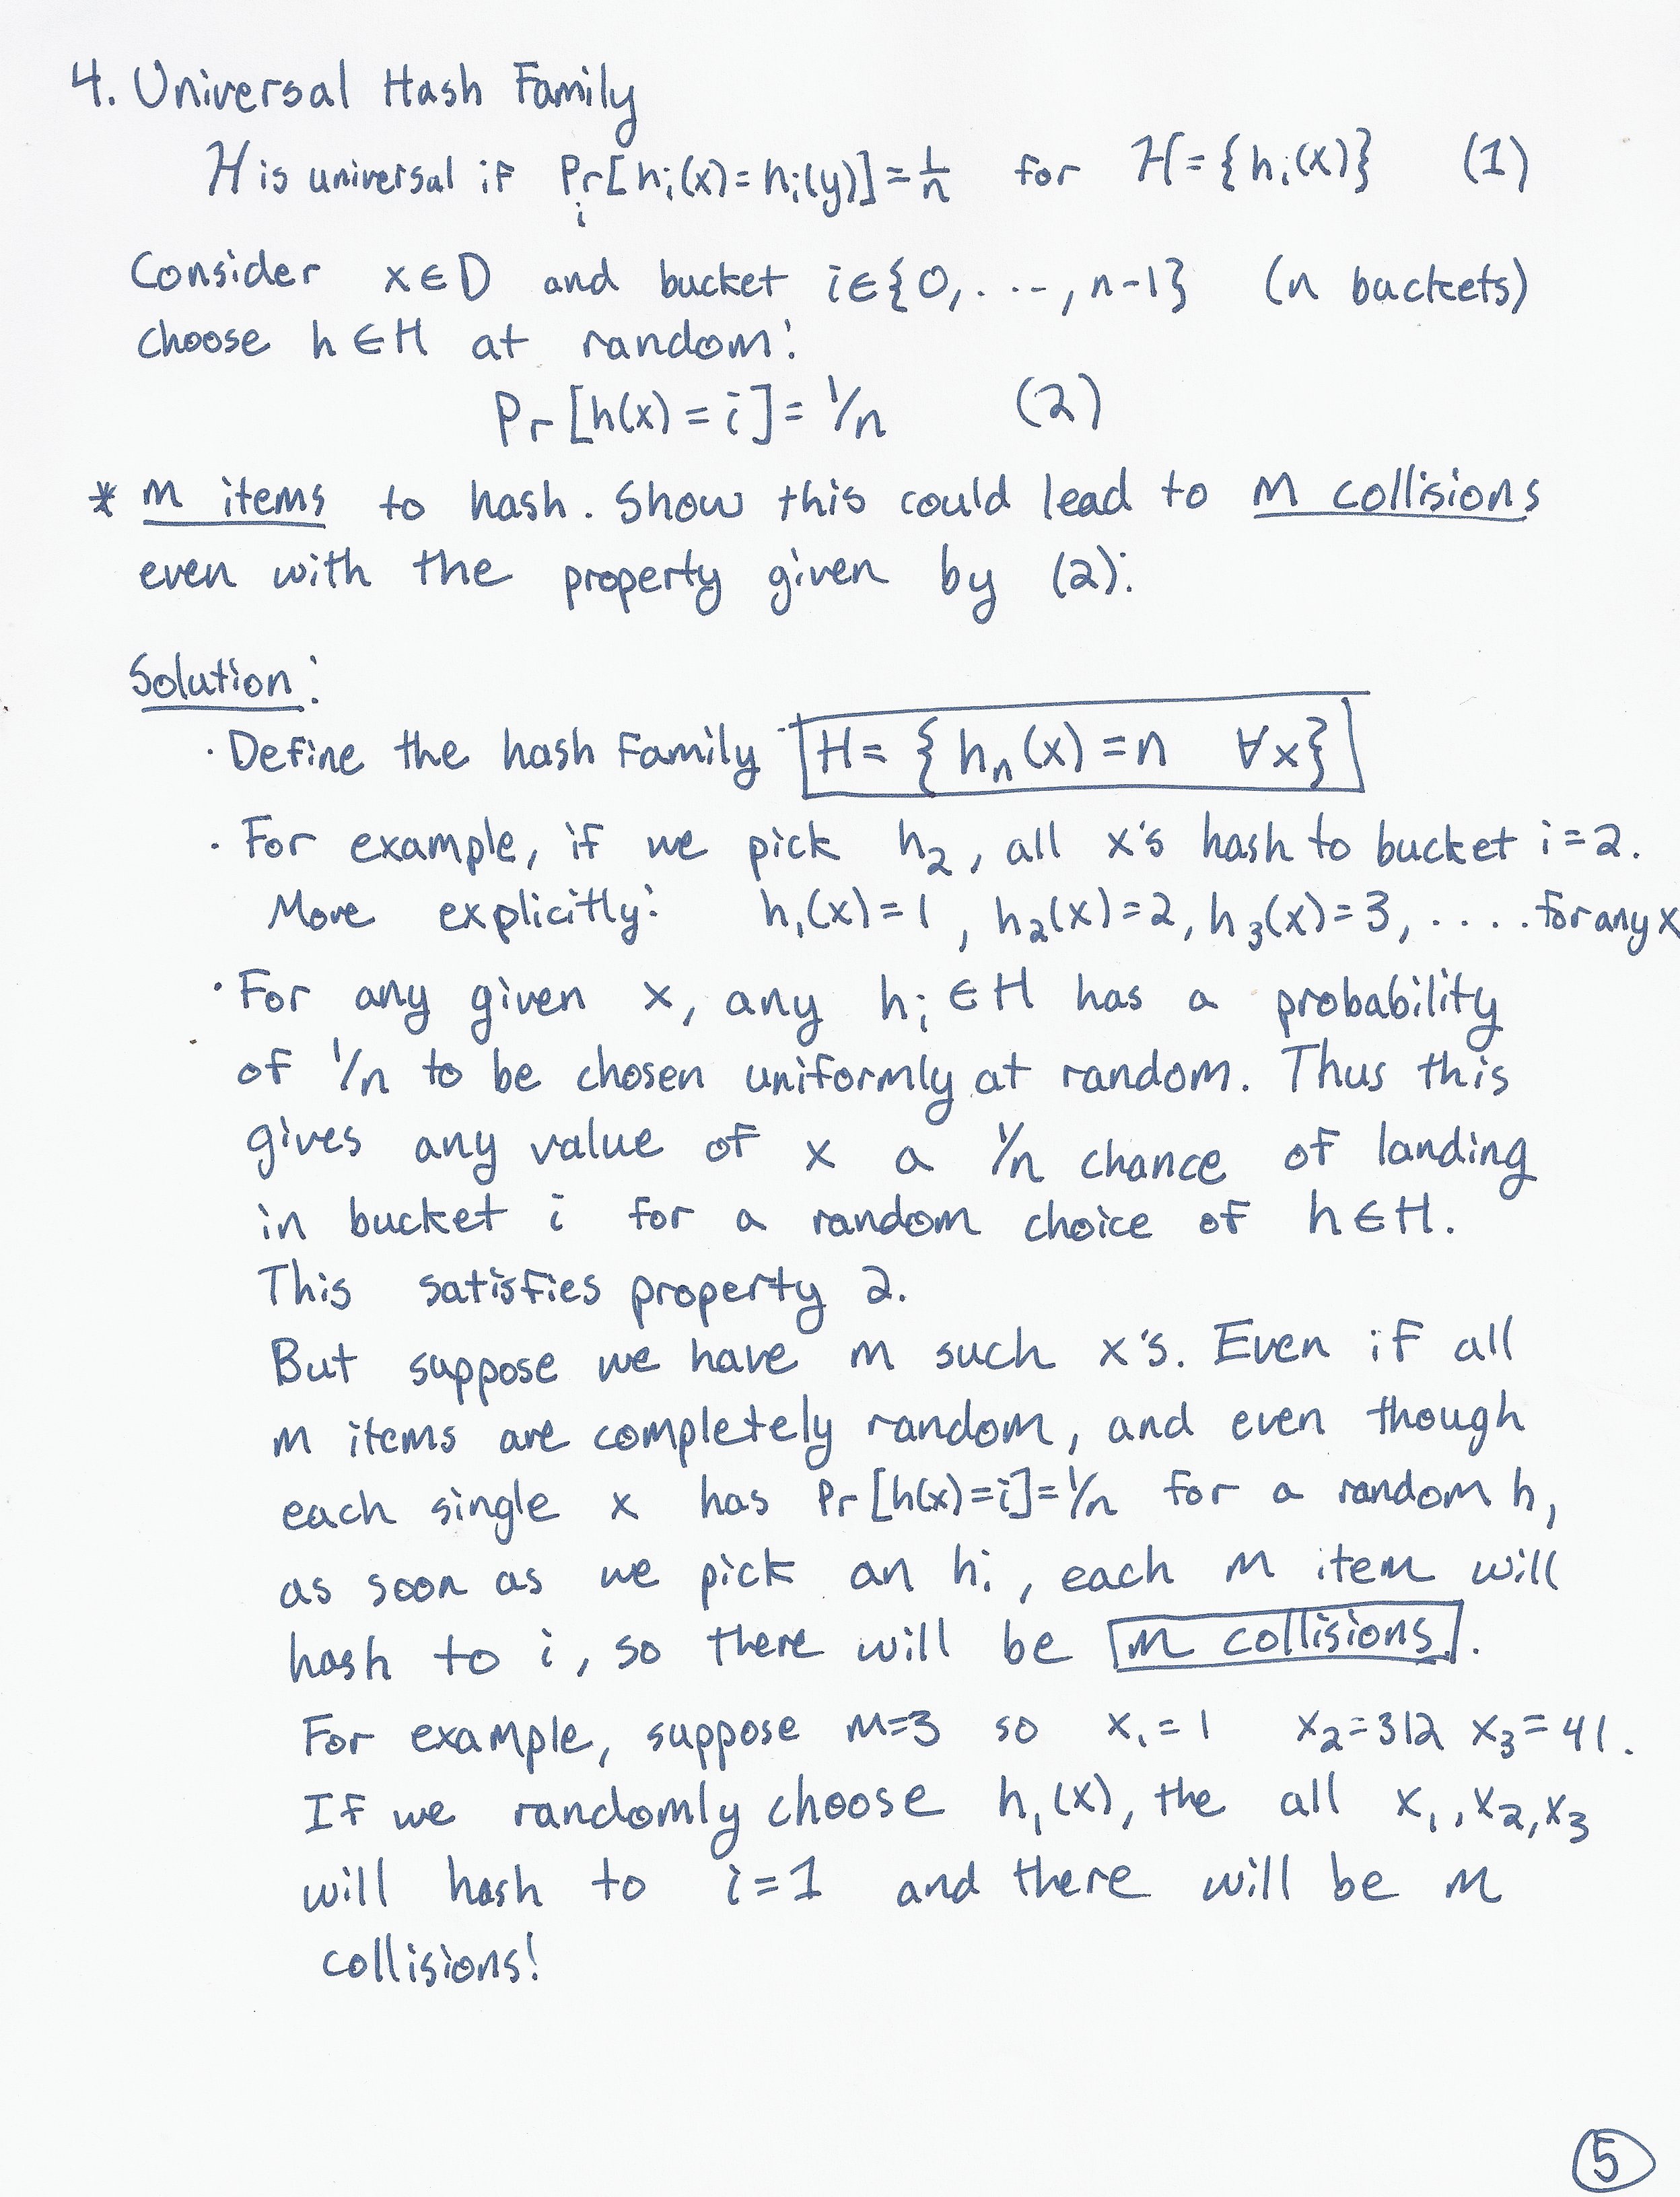 4. Universal Hash Family
H is universal if Pr[hᵢ(x)=hᵢ(y)]=1/n for H={hᵢ(x)} (1)
i
Consider x∈D and bucket i∈{0,...,n-1} (n buckets)
choose h∈H at random:
Pr[h(x)=i]=1/n (2)
* m items to hash. Show this could lead to m collisions
even with the property given by (2):
Solution:
· Define the hash Family H= {hₙ(x)=n ∀x}
· For example, if we pick h₂, all x's hash to bucket i=2.
More explicitly: h₁(x)=1, h₂(x)=2, h₃(x)=3, .... for any x
· For any given x, any hᵢ∈H has a probability
of 1/n to be chosen uniformly at random. Thus this
gives any value of x a 1/n chance of landing
in bucket i for a random choice of h∈H.
This satisfies property 2.
But suppose we have m such x's. Even if all
m items are completely random, and even though
each single x has Pr[h(x)=i]=1/n for a random h,
as soon as we pick an hᵢ, each m item will
hash to i, so there will be m collisions.
For example, suppose m=3 so x₁=1 x₂=312 x₃=41.
If we randomly choose h₁(x), the all x₁,x₂,x₃
will hash to i=1 and there will be m
collisions!
5